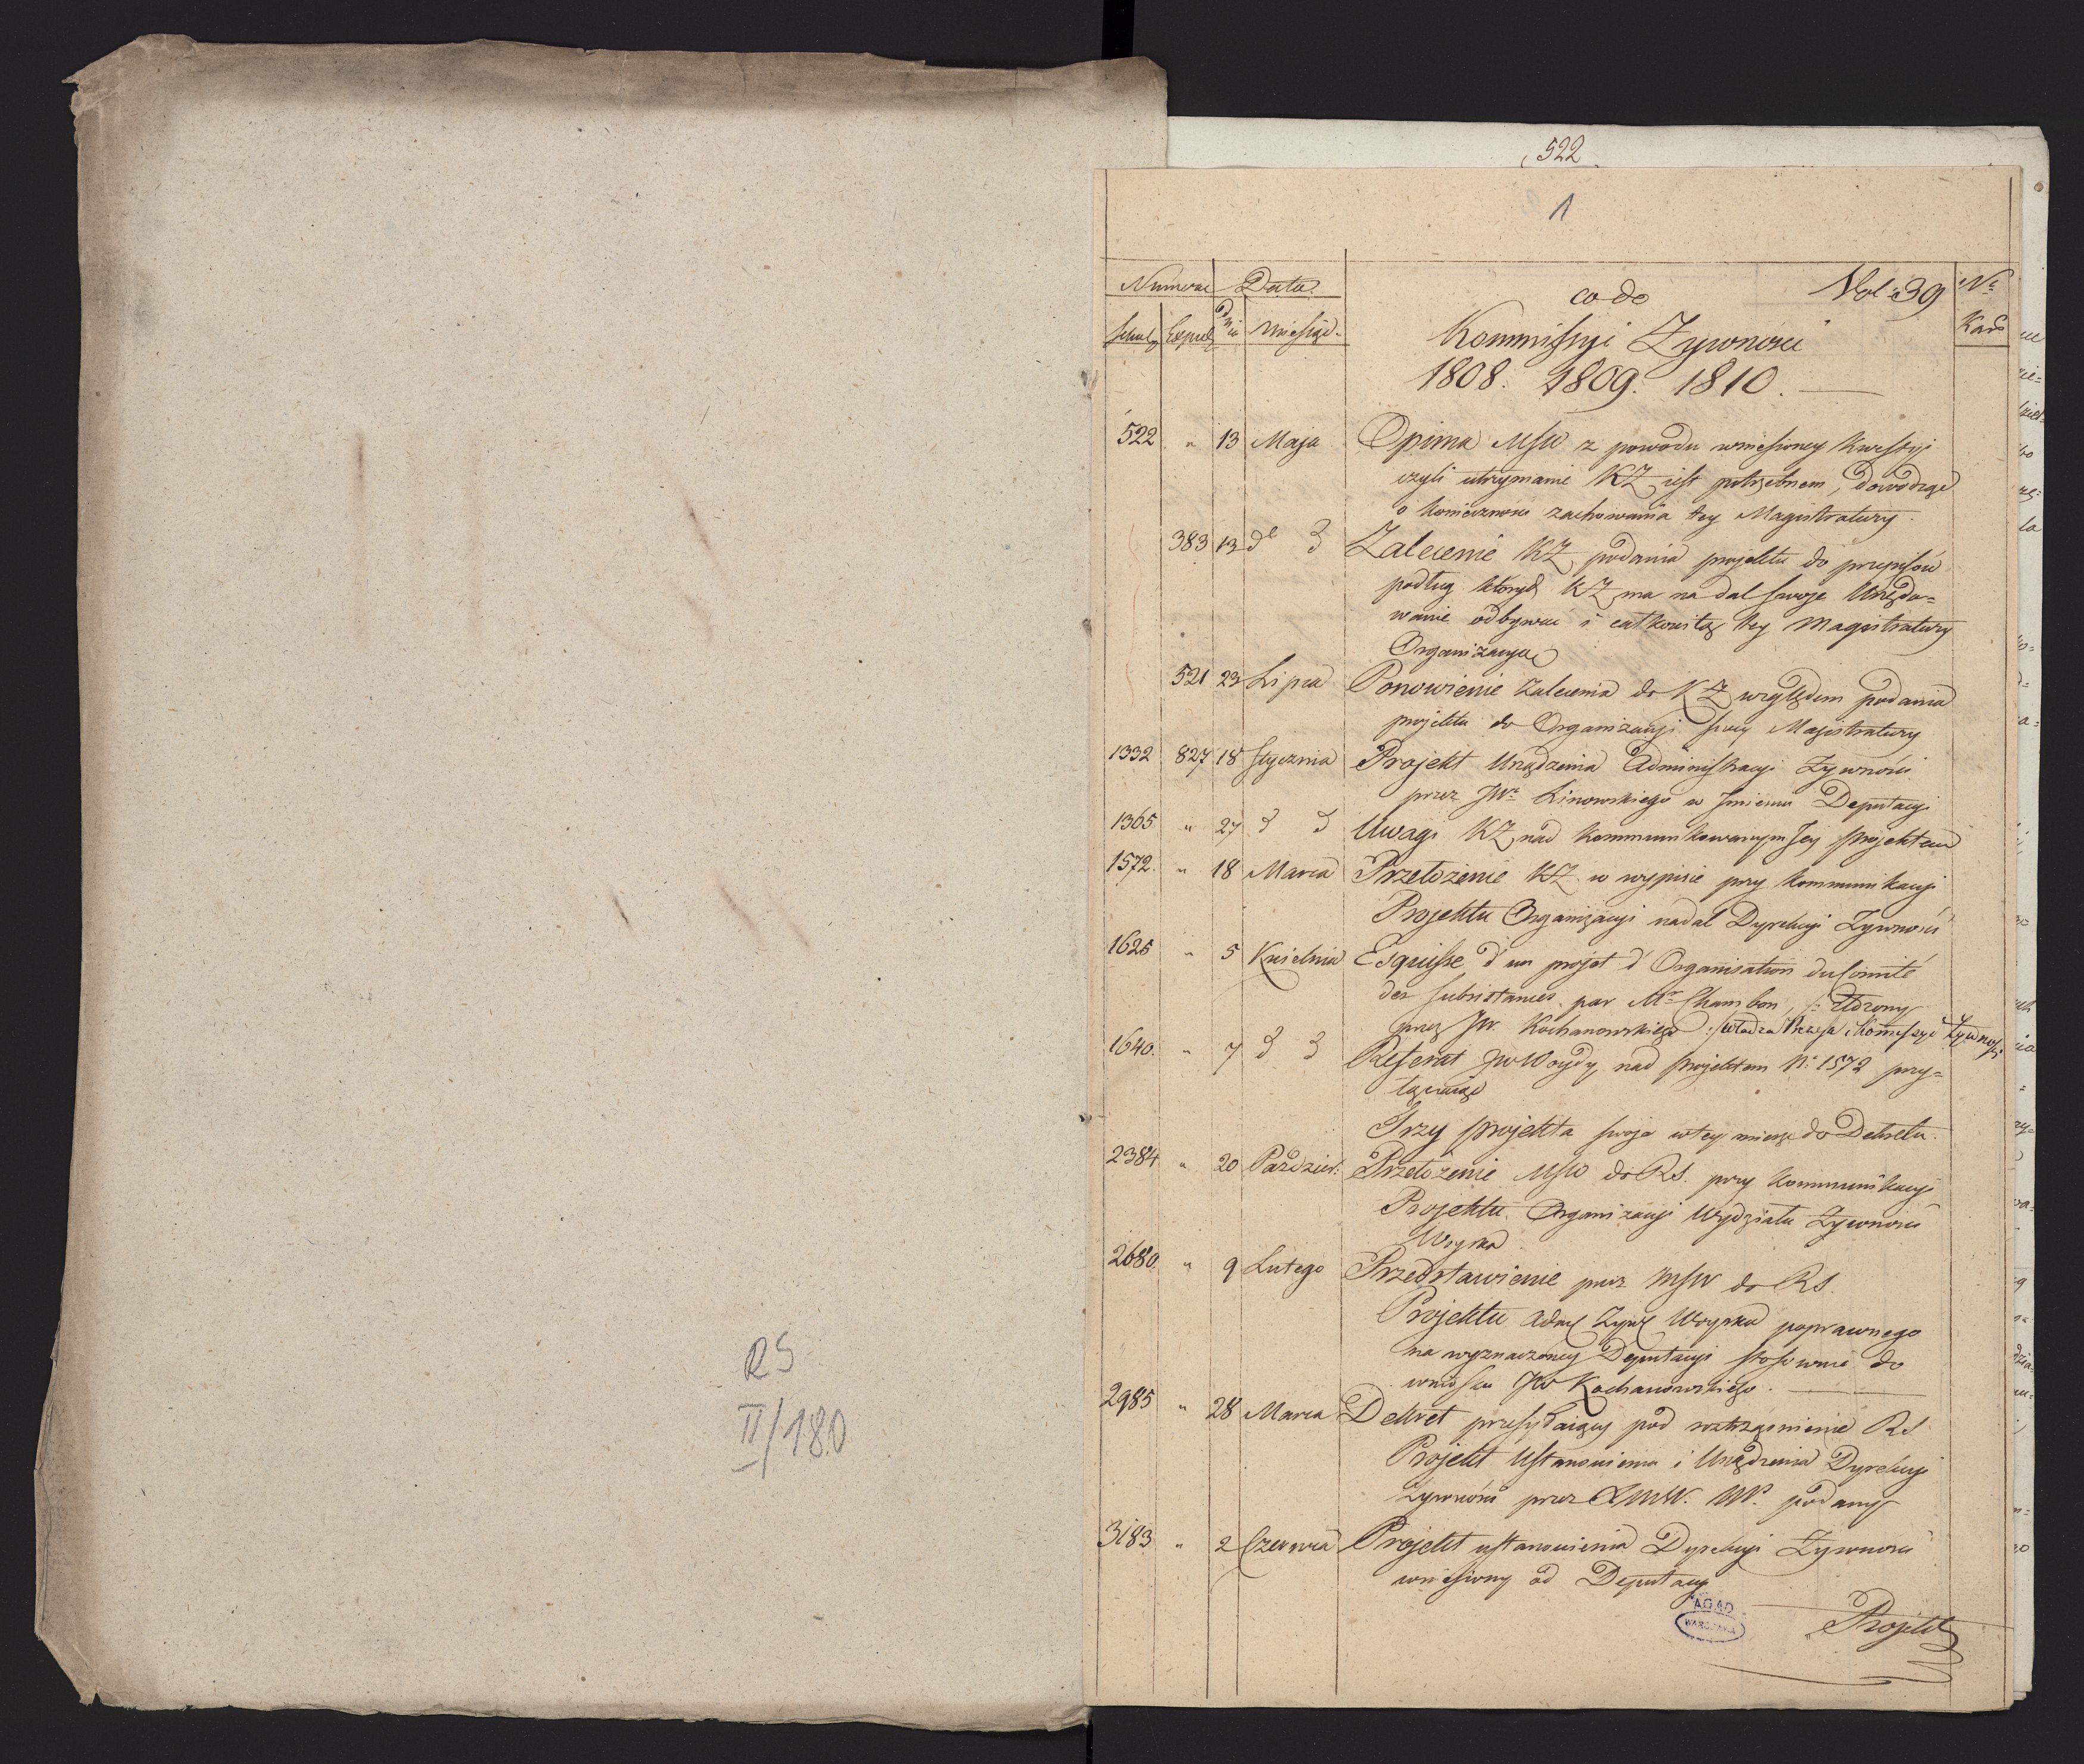 522
1
Numera Data co do Vol: 39 Nr
Exped dnia miesiąc Kommissyi Zywnosci Kart
1808. 1809. 1810.
522 " 13 Maja Opinia MSW z powodu wniesioney kwestyi
czyli utrzymanie KZ iest potrzebnem, dowodząc
o konieczności zachowania tey Magistratury.
383 13 do Zalecenie KZ podania projektu do przepisów
podług których KZ ma nadal swoje Urzędo=
wanie odbywać i całkowitą tey Magistratury
Organizacyą
521 23 Lipca Ponowienie zalecenia do KZ względem podania
projektu do Organizacyi swey Magistratury
1332 827 18 Stycznia Projekt Urządzenia Administracyi Zywności
przez JWo Linowskiego w Jmieniu Deputacyi
1365 " 27 d d Uwagi KZ nad kommunikowanym Jey projektem
1572. " 18 Marca Przełożenie KZ w wypisie przy kommunikacyi
Projektu Organizacyi nadal Dyrekcyi Zywności
1625 " 5 Kwietnia Esquisse d'un projet d'Organisation du Comité
des subsistances par Mr Chambon, złożony
przez JW. Kochanowskiego : władza Prezesa Komissyi Zywnosci
1640. " 7 d d Referat JW Woydy nad projektem Nr 1572 przy=
łączaiąc
Trzy projekta swoje w tey mierze do Dekretu.
2384 " 20 Paździer: Przełożenie MSW do RS. przy kommunikacyi
Projektu Organizacyi Wydziału Zywności
Woyska
2680 " 9 Lutego Przedstawienie przez MSW do RS.
Projektu Adm Zywn Woyska poprawnego
na wyznaczoney Deputacyi stosownie do
wniosku JW Kochanowskiego.
2985 " 28 Marca Dekret przesyłaiący pod roztrząśnienie RS
Projekt Ustanowienia i Urządzenia Dyrekcyi
Zywności przez podany
3183 " 2 Czerwca Projekt ustanowienia Dyrekcyi Zywności
wniesiony od Deputacyi
AGAD
WARSZAWA
Projekt
RS
II/180